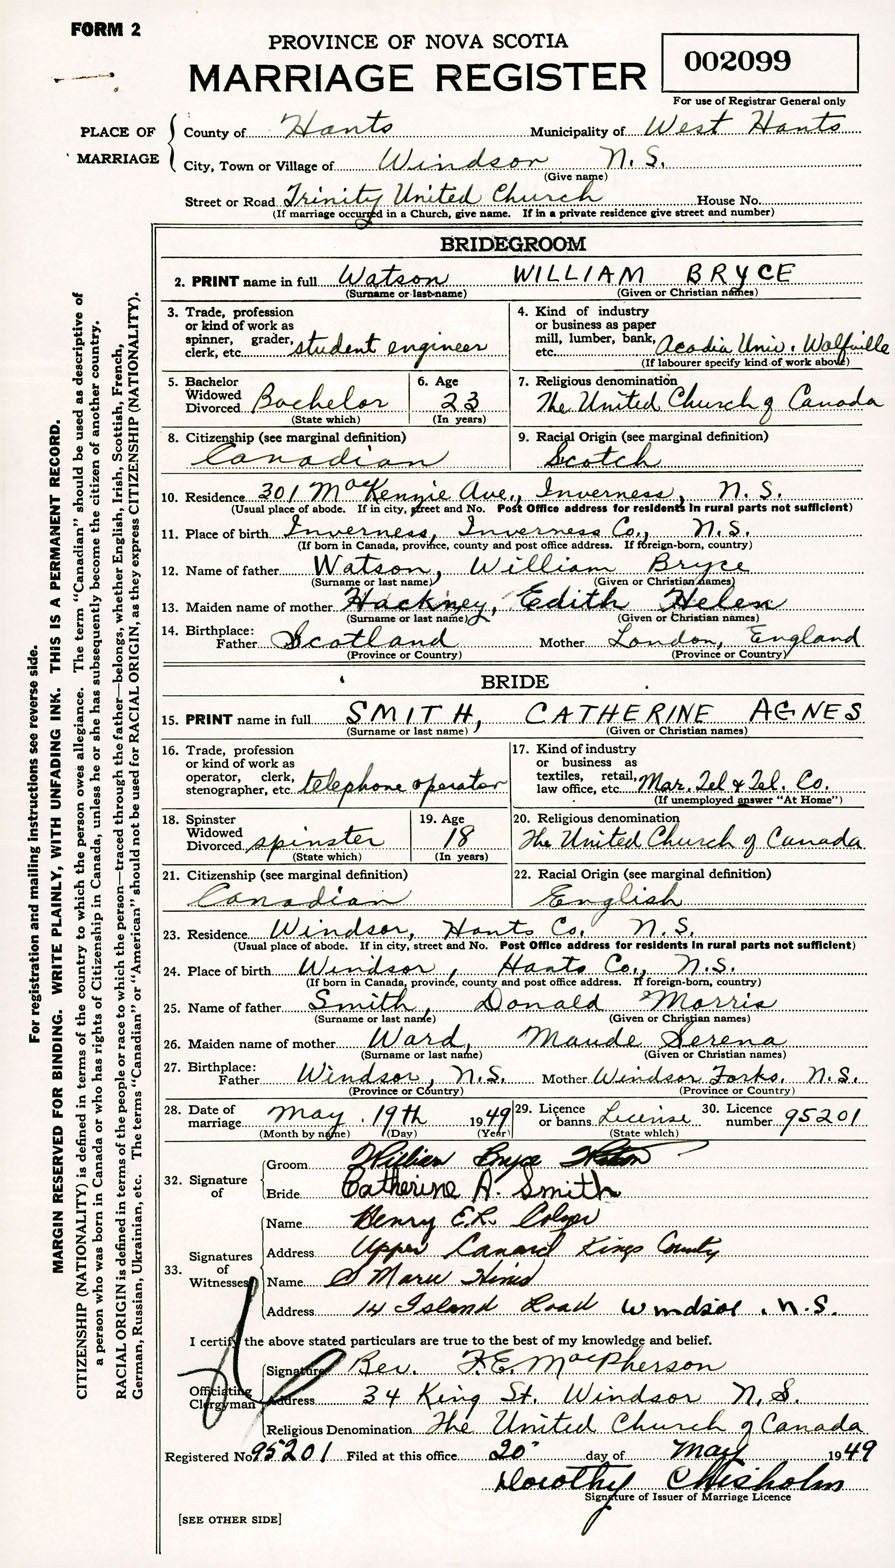 FORM 2
PROVINCE OF NOVA SCOTIA
MARRIAGE REGISTER
002099
For use of Registrar General only
PLACE OF MARRIAGE
County of Hants Municipality of West Hants
City, Town or Village of Windsor N.S.
(Give name)
Street or Road Trinity United Church House No.
(If marriage occurred in a Church, give name. If in a private residence give street and number)
BRIDEGROOM
2. PRINT name in full Watson WILLIAM BRYCE
(Surname or last name) (Given or Christian names)
3. Trade, profession or kind of work as spinner, grader, clerk, etc. student engineer
4. Kind of industry or business as paper mill, lumber, bank, etc. Acadia Univ. Wolfville
(If labourer specify kind of work above)
5. Bachelor Widowed Divorced Bachelor
(State which)
6. Age 23
(In years)
7. Religious denomination
The United Church of Canada
8. Citizenship (see marginal definition)
Canadian
9. Racial Origin (see marginal definition)
Scotch
10. Residence 301 MacKenzie Ave., Inverness, N.S.
(Usual place of abode. If in city, street and No. Post Office address for residents in rural parts not sufficient)
11. Place of birth Inverness, Inverness Co., N.S.
(If born in Canada, province, county and post office address. If foreign-born, country)
12. Name of father Watson, William Bryce
(Surname or last name) (Given or Christian names)
13. Maiden name of mother Hackney, Edith Helen
(Surname or last name) (Given or Christian names)
14. Birthplace: Father Scotland Mother London, England
(Province or Country) (Province or Country)
BRIDE
15. PRINT name in full SMITH, CATHERINE AGNES
(Surname or last name) (Given or Christian names)
16. Trade, profession or kind of work as operator, clerk, stenographer, etc. telephone operator
17. Kind of industry or business as textiles, retail, law office, etc. Mar. Tel & Tel. Co.
(If unemployed answer "At Home")
18. Spinster Widowed Divorced spinster
(State which)
19. Age 18
(In years)
20. Religious denomination
The United Church of Canada
21. Citizenship (see marginal definition)
Canadian
22. Racial Origin (see marginal definition)
English
23. Residence Windsor, Hants Co. N.S.
(Usual place of abode. If in city, street and No. Post Office address for residents in rural parts not sufficient)
24. Place of birth Windsor, Hants Co., N.S.
(If born in Canada, province, county and post office address. If foreign-born, country)
25. Name of father Smith, Donald Morris
(Surname or last name) (Given or Christian names)
26. Maiden name of mother Ward, Maude Serena
(Surname or last name) (Given or Christian names)
27. Birthplace: Father Windsor, N.S. Mother Windsor Forks, N.S.
(Province or Country) (Province or Country)
28. Date of marriage May 19th 1949
(Month by name) (Day) (Year)
29. Licence or banns License
(State which)
30. Licence number 95201
32. Signature of
Groom William Bryce Watson
Bride Catherine A. Smith
33. Signatures of Witnesses
Name Henry E.R.
Address Upper Canard Kings County
Name Marie
Address 14 Island Road Windsor, N.S.
I certify the above stated particulars are true to the best of my knowledge and belief.
Officiating Clergyman
Signature Rev. F.E. MacPherson
Address 34 King St. Windsor N.S.
Religious Denomination The United Church of Canada
Registered No 95201 Filed at this office 20 day of May 1949
Dorothy Chisholm
Signature of Issuer of Marriage Licence
[SEE OTHER SIDE]
For registration and mailing instructions see reverse side.
MARGIN RESERVED FOR BINDING. WRITE PLAINLY, WITH UNFADING INK. THIS IS A PERMANENT RECORD.
CITIZENSHIP (NATIONALITY) is defined in terms of the country to which the person owes allegiance. The term "Canadian" should be used as descriptive of
a person who was born in Canada or who has rights of Citizenship in Canada, unless he or she has subsequently become the citizen of another country.
RACIAL ORIGIN is defined in terms of the people or race to which the person—traced through the father—belongs, whether English, Irish, Scottish, French,
German, Russian, Ukrainian, etc. The terms "Canadian" or "American" should not be used for RACIAL ORIGIN, as they express CITIZENSHIP (NATIONALITY).